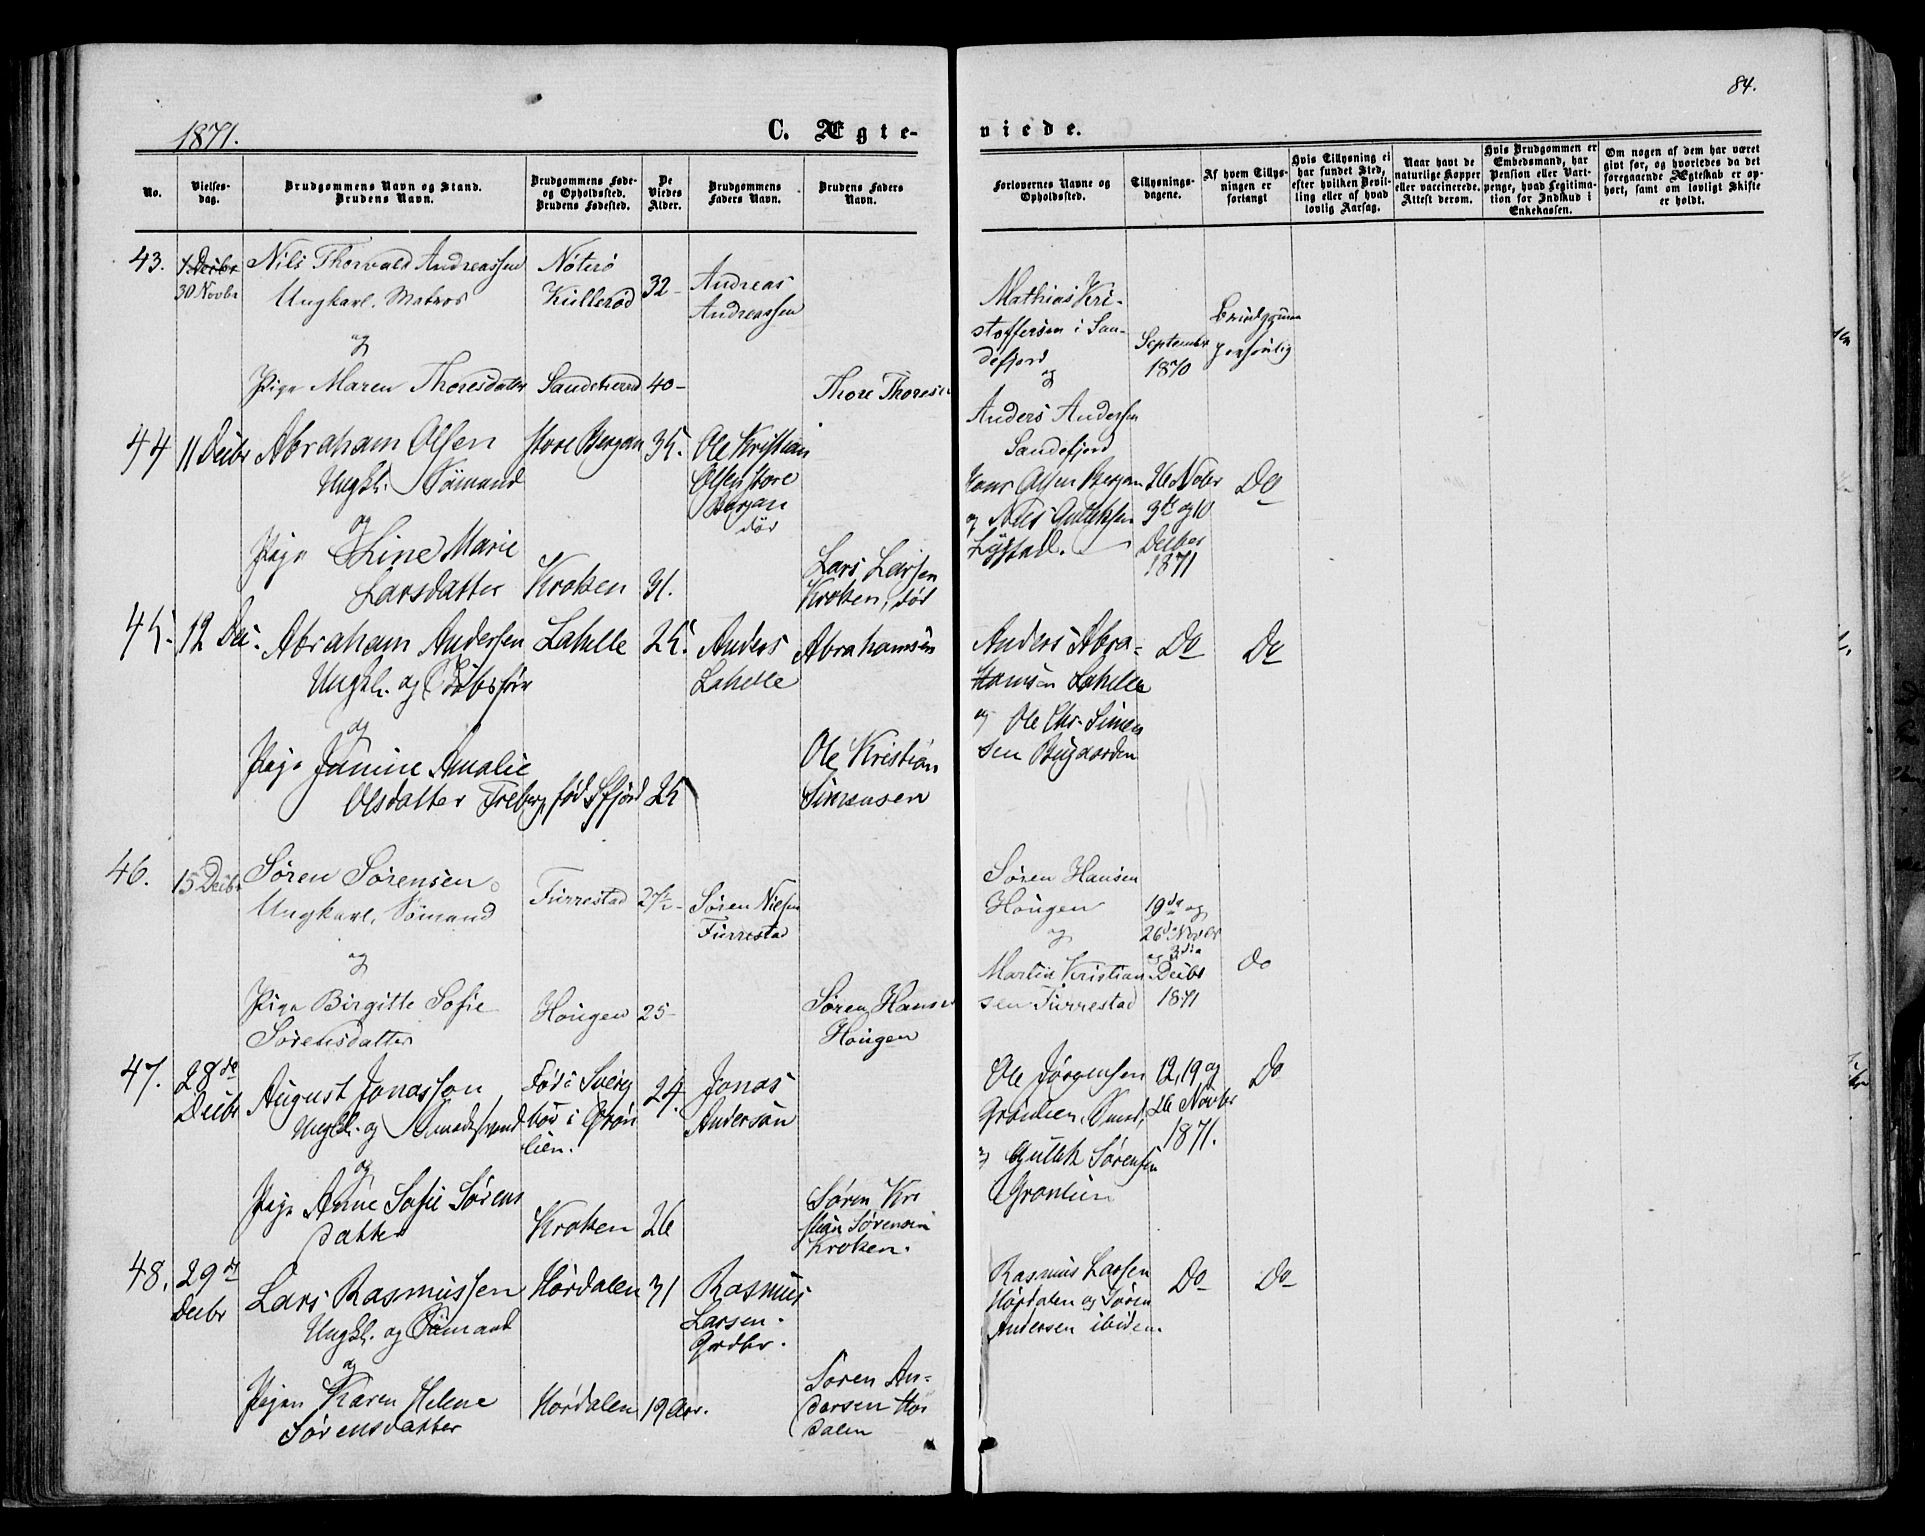 84.
1871.
C. Ægte-
viede.
No.
Vielses-
dag.
Brudgommens Navn og Stand.
Brudens Navn.
Brudgommens Føde-
og Opholdssted.
Brudens Fødested.
De
Viedes
Alder.
Brudgommens
Faders Navn.
Brudens Faders
Navn.
Forlovernes Navne og
Opholdssted.
Tillysnings-
dagene.
Af hvem Tillys-
ningen er
forlangt
Hvis Tillysning ei
har fundet Sted,
efter hvilken Bevil-
ling eller af hvad
lovlig Aarsag.
Naar havt de
naturlige Kopper
eller vaccinerede.
Attest derom.
Hvis Brudgommen er
Embedsmand, har
Pension eller Vart-
penge, hvad Legitima-
tion for Indskud i
Enkekassen.
Om nogen af dem har været
givt før, og hvorledes da det
foregaaende Ægteskab er op-
hørt, samt om lovligt Skifte
er holdt.
43.
1. Decbr
30 Novbr
Nils Thorvald Andreassen
Ungkarl. Matros
og
Pige Maren Thoresdatter
Nøterø
Küllerød
Sandeherred
32
40
Andreas
Andreassen
Thore Thoresen
Mathias Kri-
stoffersen i San-
defjord
og
Anders Andersen
Sandefjord
September
1870
Brudgum
personlig
44
11 Decbr
Abraham Olsen
Ungkl. Sömand
og
Pige Line Marie
Larsdatter
Store Bergan
Kroken
35.
31.
Ole Kristian
Olsen store
Bergan
död
Lars Larsen
Kroken, död
Hans Olsen Bergan
og Nils
26 Nobr
3die og 10
Decber
1871
Do
45.
12 Dec.
Abraham Andersen
Ungkl. og
og
Pige Janine Amalie
Olsdatter
Lahelle
født Sfjord
25.
25
Anders
Lahelle
Abrahamsen
Ole Kristian
Simensen
Anders Abra-
hamsen Lahelle
og Ole Chr. Simen
sen Bugaarden
Do
Do
46.
15 Decbr
Søren Sørensen
Ungkarl, Sømand
og
Pige Birgitte Sofie
Sørensdatter
Furrestad
Hougen
27½
25
Søren Nielsen
Furrestad
Søren Hansen
Hougen
Søren Hansen
Hougen
og
Martin Kristian
sen Furrestad
19de og
26de Novbr
og 3die
Decbr
1871
Do
47.
28de
Decbr
August Jonasson
Ungkl. og
og
Pige Anne Sofie Sørens
datter
Fød i Sverig
boe i Grön
lien.
Kroken
24.
26
Jonas
Anderson
Søren Kri
stian Sørensen
Kroken.
Ole Jörgensen
Grönlien,
og Gullik Sørensen
Grönlien
12, 19 og
26 Novbr
1871.
Do
48.
29de
Decbr
Lars Rasmussen
Ungkl. og Sömand
og
Pigen Karen Helene
Sørensdatter
Hørdalen
Hørdalen
31
19 Aar.
Rasmus
Larsen.
Grdbr.
Søren An-
dersen Hør
dalen
Rasmus Larsen
Hørdalen og Søren
Andersen ibidem.
Do
Do